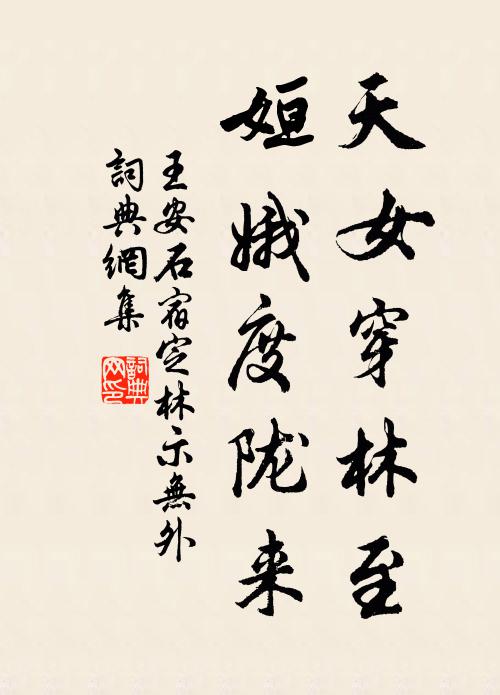 天女穿林至
姮娥度陇来
王安石宿定林示無外
詞典網集
詞典网印